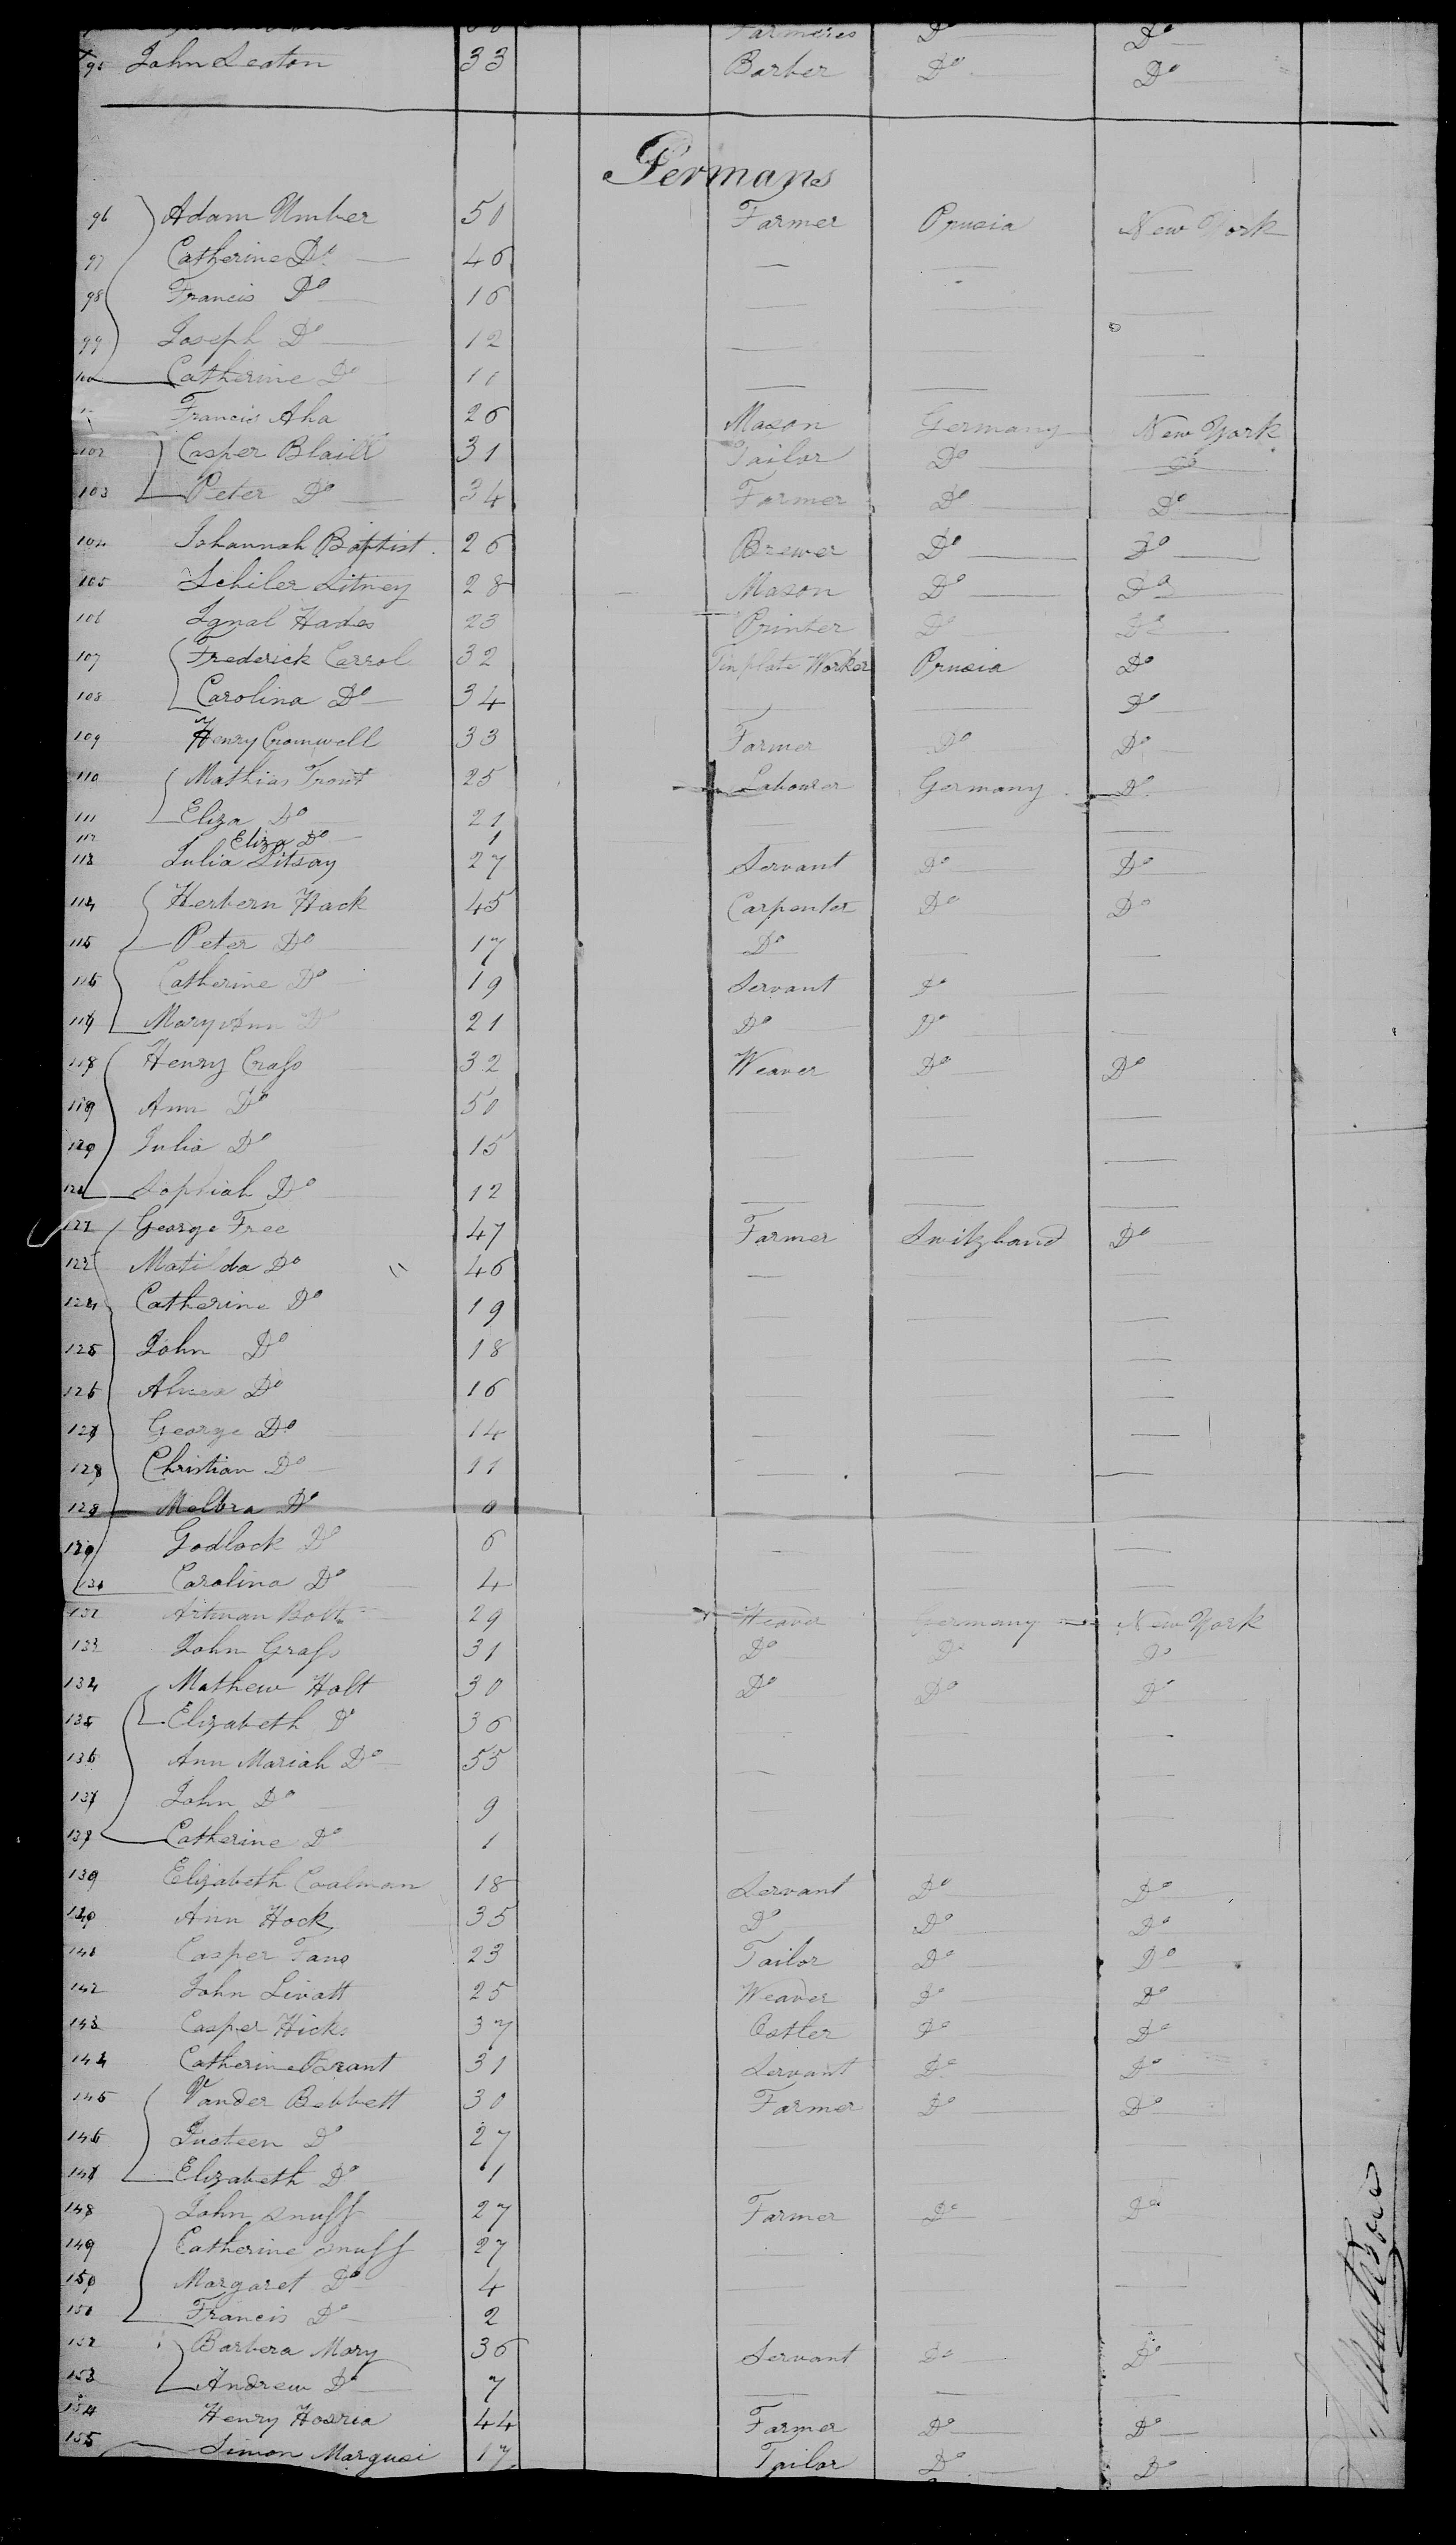 Farmeres Do Do
95 John Seaton 33 Barber Do Do
Germans
96 Adam Umber 50 Farmer Prusia New York
97 Catherine Do 46
98 Francis Do 16
99 Joseph Do 12
100 Catherine Do 10
Francis Aha 26 Mason Germany New York
102 Casper Blaill 31 Tailor Do Do
103 Peter Do 34 Farmer Do Do
104 Johannah Baptist 26 Brewer Do Do
105 Schiler Litney 28 Mason Do Do
106 Ignal Hades 23 Printer Do Do
107 Frederick Carrol 32 Tin plate Worker Prusia Do
108 Carolina Do 34 Do
109 Henry Cromwell 33 Farmer Do Do
110 Mathias Trout 25 Labourer Germany Do
111 Eliza Do 21
112 Eliza Do 1
113 Julia Litsay 27 Servant Do Do
114 Herbern Hack 45 Carpenter Do Do
115 Peter Do 17 Do
116 Catherine Do 19 Servant Do
117 Mary Ann Do 21 Do Do
118 Henry Crass 32 Weaver Do Do
119 Ann Do 50
120 Julia Do 15
121 Sophiah Do 12
122 George Free 47 Farmer Switzland Do
123 Matilda Do 46
124 Catherine Do 19
125 John Do 18
126 Do 16
127 George Do 14
128 Christian Do 11
129 Melbra Do
130 Godlock Do 6
131 Carolina Do 4
132 Artman Bolt 29 Weaver Germany New York
133 John Grass 31 Do Do Do
134 Mathew Holt 30 Do Do Do
135 Elizabeth Do 36
136 Ann Mariah Do 55
137 John Do 9
138 Catherine Do 1
139 Elizabeth Coalman 18 Servant Do Do
140 Ann Hock 35 Do Do Do
141 Casper Fans 23 Tailor Do Do
142 John Livatt 25 Weaver Do Do
143 Casper Hicks 37 Ostler Do Do
144 Catherine Brant 31 Servant Do Do
145 Vander Bebbett 30 Farmer Do Do
146 Justeen Do 27
147 Elizabeth Do 1
148 John Snuff 27 Farmer Do Do
149 Catherine Snuff 27
150 Margaret Do 4
151 Francis Do 2
152 Barbera Mary 36 Servant Do Do
153 Andrew Do 7
154 Henry Hosria 44 Farmer Do Do
155 Simon Marqusi 17 Tailor Do Do